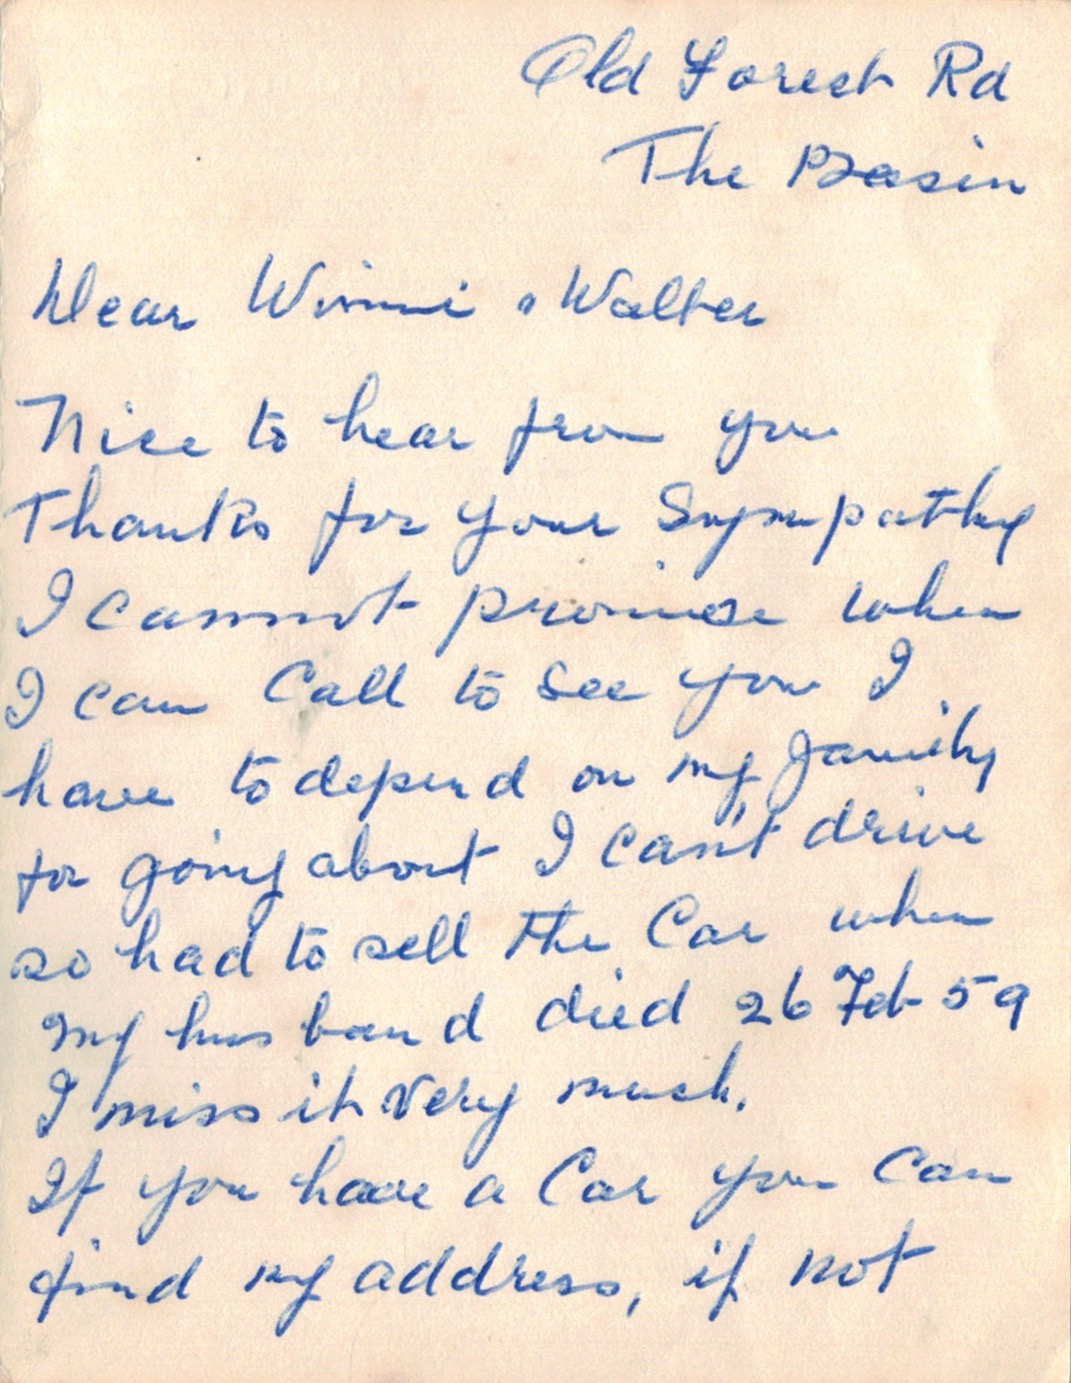 Old Forest Rd
The Basin
Dear Winnie & Walter
Nice to hear from you
Thanks for your Sympathy
I cannot promise when
I can Call to See you I
have to depend on my family
for going about I can't drive
so had to sell the Car when
my husband died 26 Feb 59
I miss it very much.
If you have a Car you Can
find my address, if not